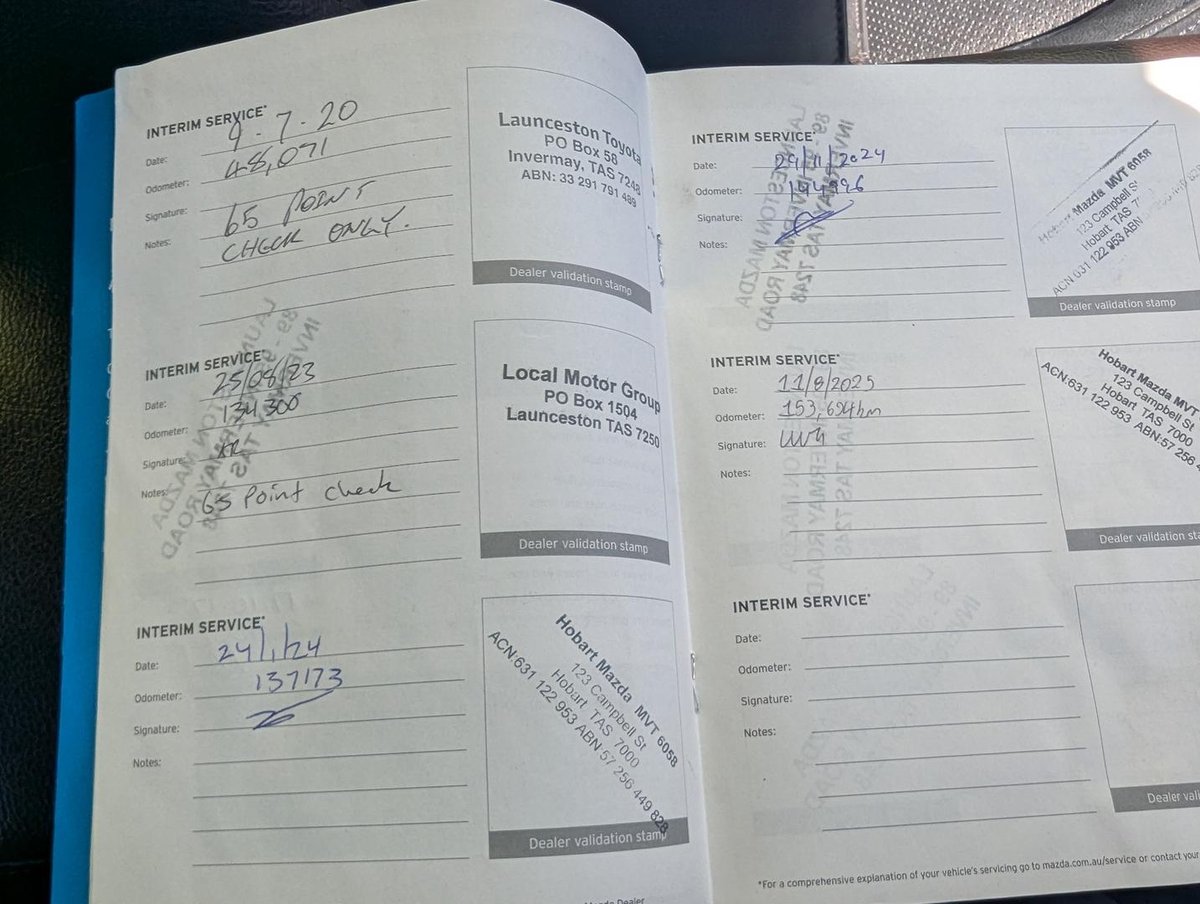 INTERIM SERVICE*
Date: 9.7.20
Odometer: 48,071
Signature:
65 POINT
Notes: CHECK ONLY.
Launceston Toyota
PO Box 58
Invermay, TAS 7248
ABN: 33 291 791 489
Dealer validation stamp
INTERIM SERVICE*
Date: 25/08/23
Odometer: 134,300
Signature:
Notes: 65 Point check
Local Motor Group
PO Box 1504
Launceston TAS 7250
Dealer validation stamp
INTERIM SERVICE*
Date: 24/1/24
Odometer: 137173
Signature:
Notes:
Hobart Mazda MVT 6058
123 Campbell St
Hobart TAS 7000
ACN:631 122 953 ABN 57 256 449 828
Dealer validation stamp
INTERIM SERVICE*
Date: 29/11/2024
Odometer:
Signature:
Notes:
Hobart Mazda MVT 6058
123 Campbell St
Hobart TAS
ACN 031 122 953 ABN
Dealer validation stamp
INTERIM SERVICE*
Date: 11/8/2025
Odometer: 153,694km
Signature:
Notes:
Hobart Mazda MVT
123 Campbell St
Hobart TAS 7000
ACN:631 122 953 ABN:57 256
Dealer validation sta
INTERIM SERVICE*
Date:
Odometer:
Signature:
Notes:
Dealer vali
*For a comprehensive explanation of your vehicle's servicing go to mazda.com.au/service or contact your
Dealer